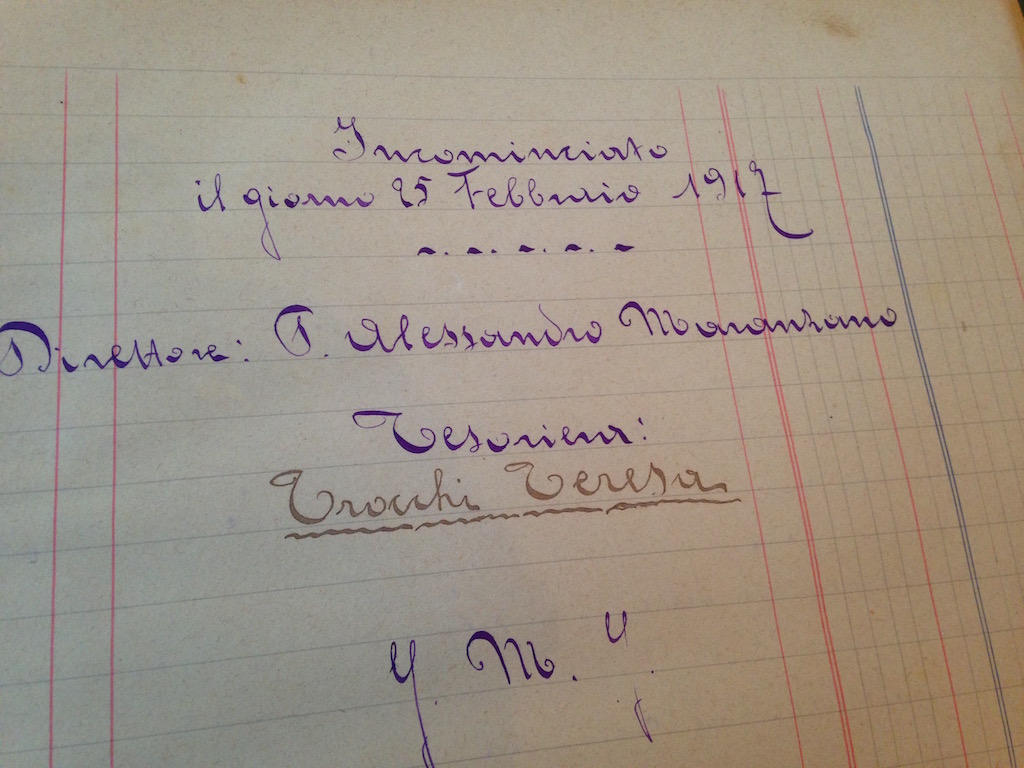 Incominciato
il giorno 25 Febbraio 1917
Direttore: P. Alessandro Maranzano
Tesoriera:
Trocchi Teresa
M.